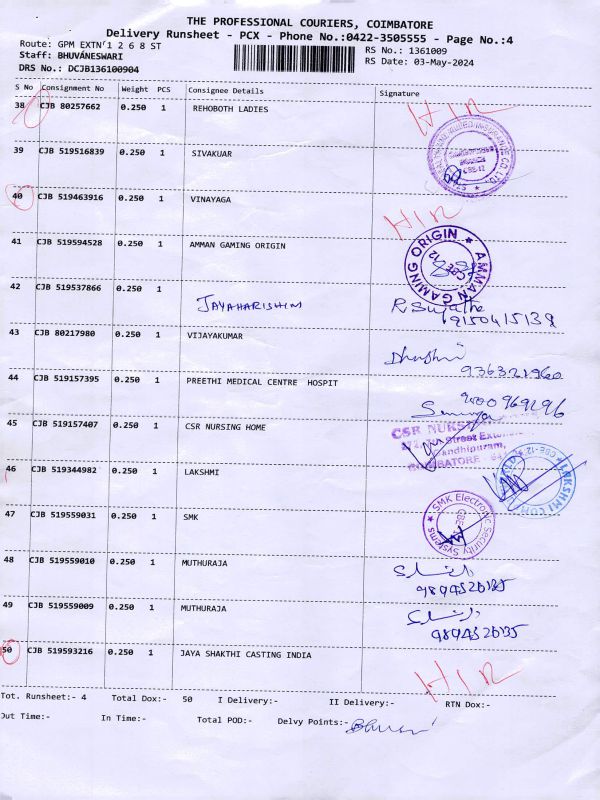 THE PROFESSIONAL COURIERS, COIMBATORE
Delivery Runsheet - PCX - Phone No.:0422-3505555 - Page No.:4
Route: GPM EXTN'1 2 6 8 ST RS No.: 1361009
Staff: BHUVANESWARI RS Date: 03-May-2024
DRS No.: DCJB136100904
S No Consignment No Weight PCS Consignee Details Signature
38 CJB 80257662 0.250 1 REHOBOTH LADIES HIR
39 CJB 519516839 0.250 1 SIVAKUAR
40 CJB 519463916 0.250 1 VINAYAGA HIR
41 CJB 519594528 0.250 1 AMMAN GAMING ORIGIN
AMMAN GAMING ORIGIN
CBE-12
42 CJB 519537866 0.250 1 JAYAHARISHIM R Sujatha
9150415139
43 CJB 80217980 0.250 1 VIJAYAKUMAR
9363221960
44 CJB 519157395 0.250 1 PREETHI MEDICAL CENTRE HOSPIT
9500969296
45 CJB 519157407 0.250 1 CSR NURSING HOME
CSR NURS
Street Exten
andhipuram,
46 CJB 519344982 0.250 1 LAKSHMI
LAKSHMI COM
CBE-12
47 CJB 519559031 0.250 1 SMK
SMK Electronic Security Systems
48 CJB 519559010 0.250 1 MUTHURAJA
49 CJB 519559009 0.250 1 MUTHURAJA
50 CJB 519593216 0.250 1 JAYA SHAKTHI CASTING INDIA HIR
Tot. Runsheet:- 4 Total Dox:- 50 I Delivery:- II Delivery:- RTN Dox:-
Out Time:- In Time:- Total POD:- Delvy Points:-